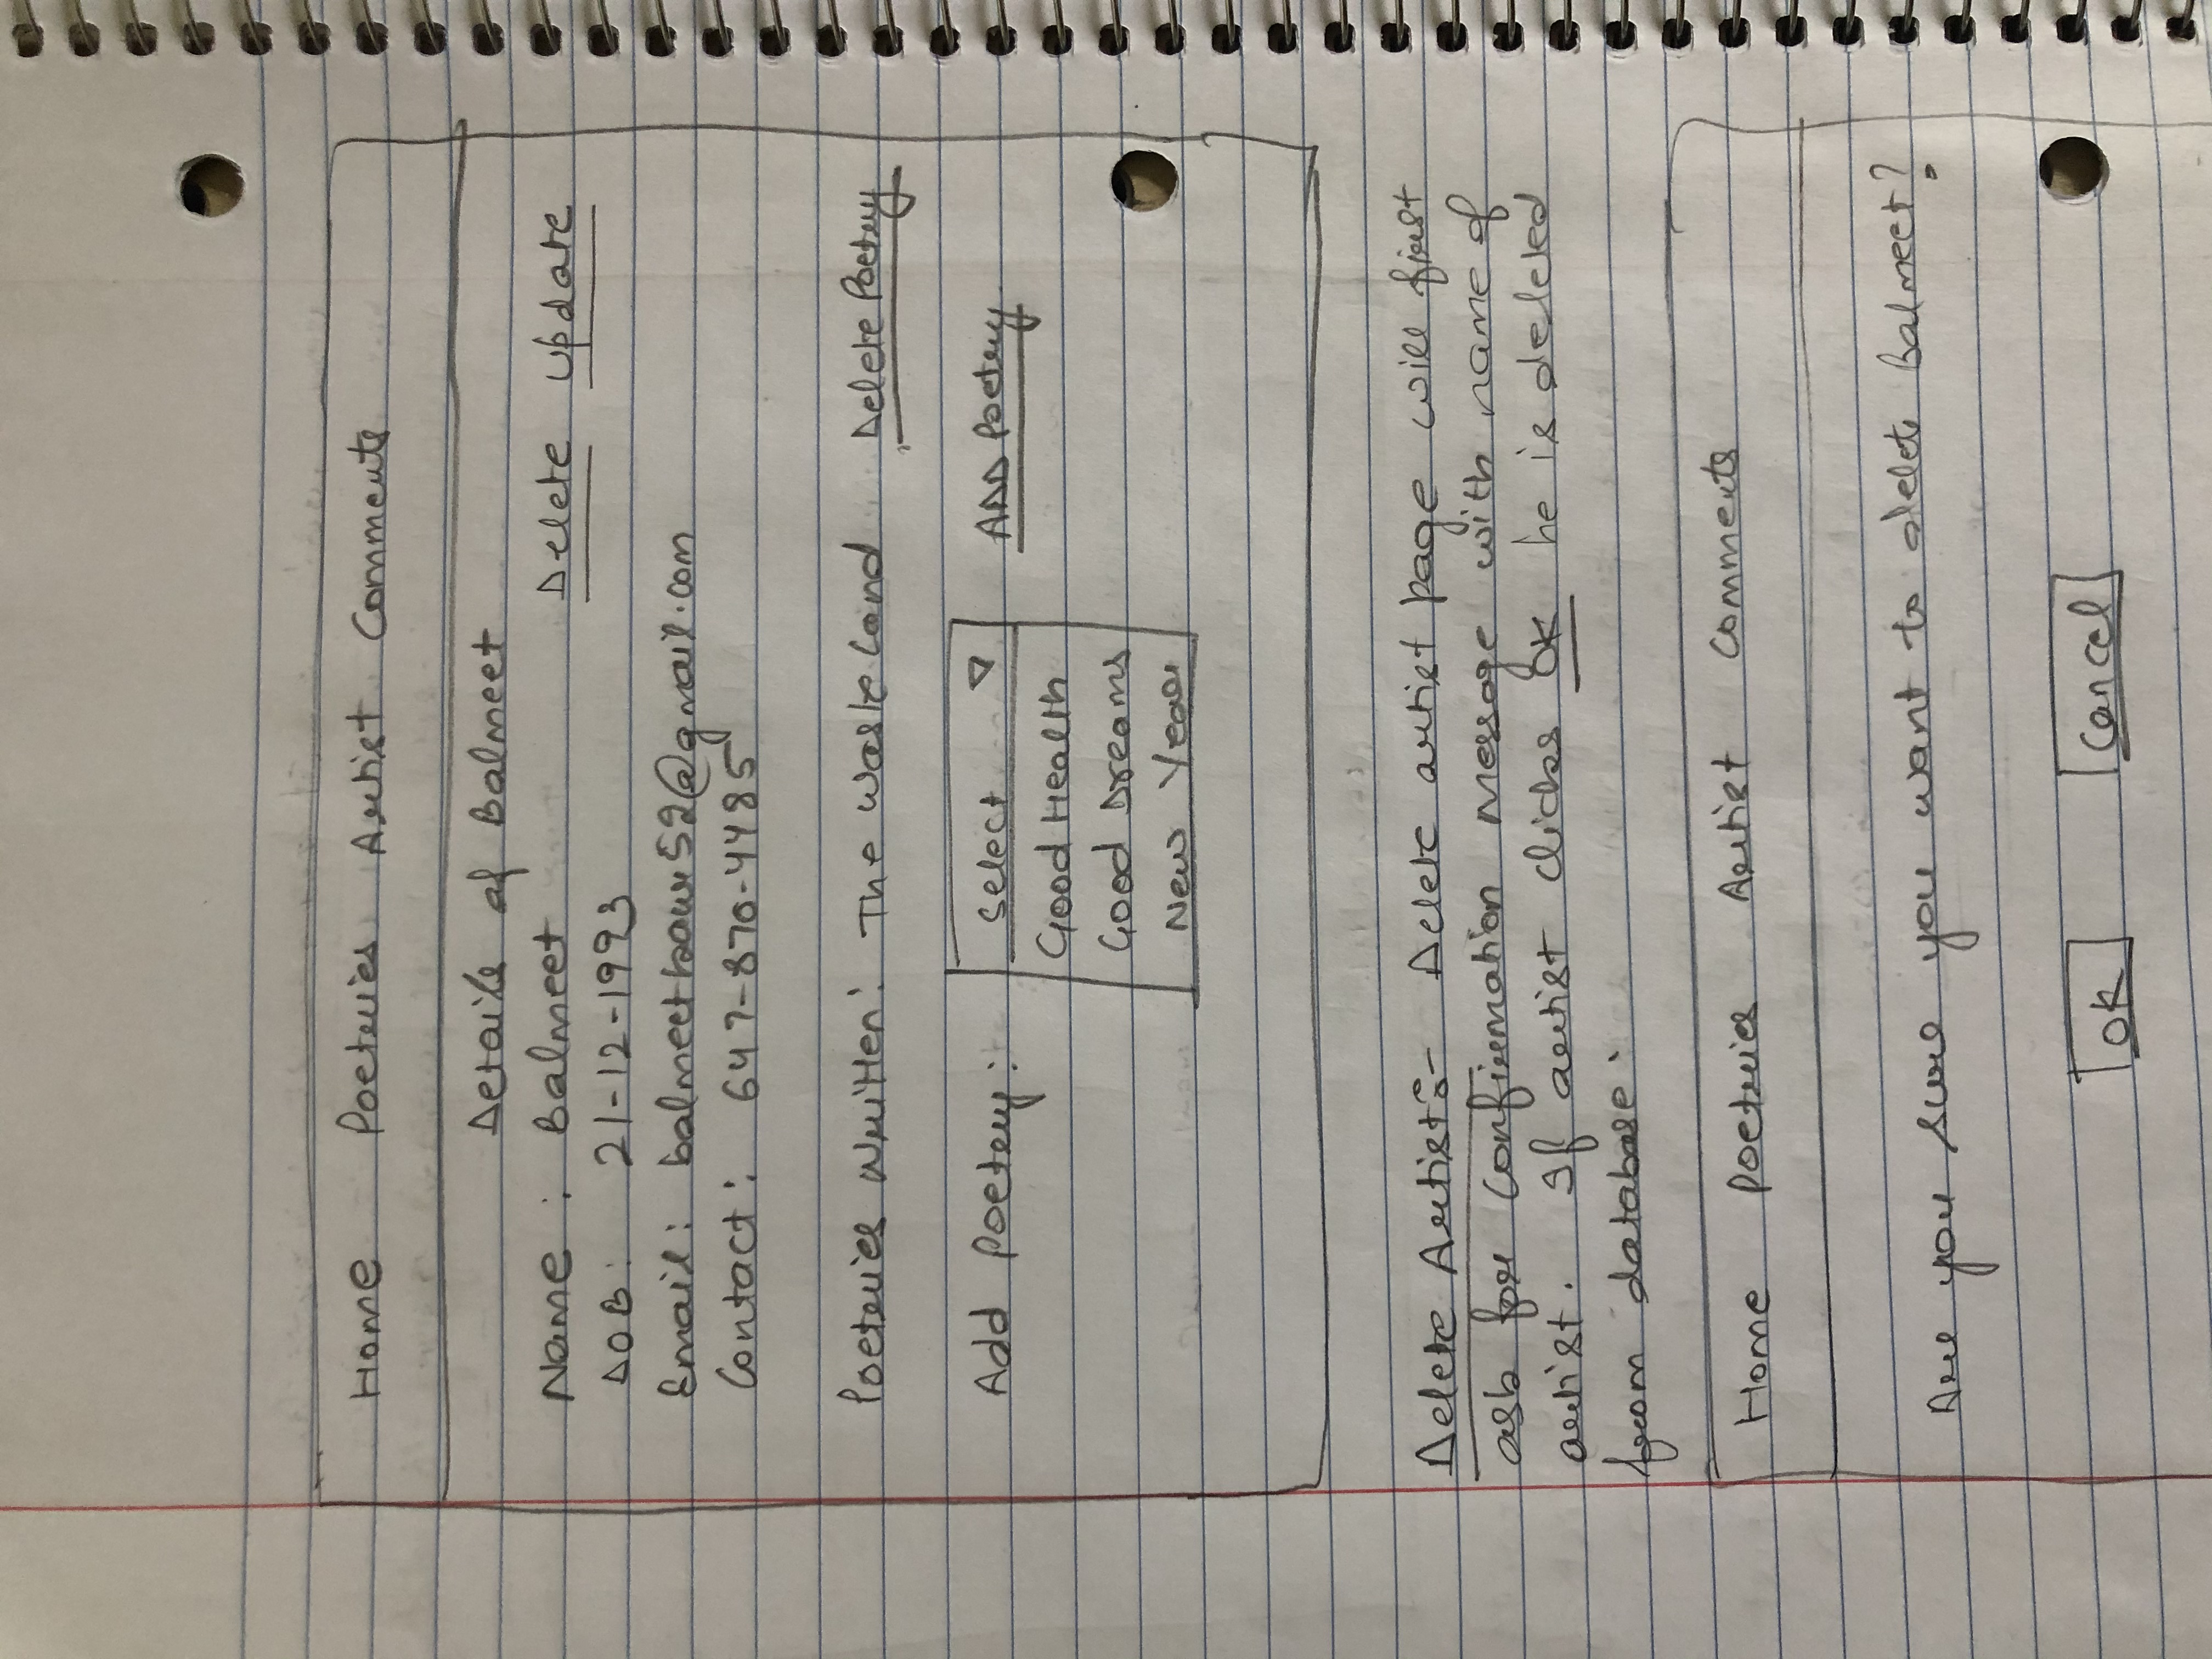 Home Poetries Artist Comments
Details of Balmeet
Name : Balmeet Delete Update
DOB: 21-12-1993
Email: balmeetkaur52@gmail.com
Contact: 647-870-4485
Poetries Written: The Waste Land Delete Poetry
Add Poetry: Select ADD Poetry
Good Health
Good Dreams
New Year
Delete Artist:- Delete artist page will first
ask for confirmation message with name of
artist. If artist clicks OK he is deleted
from database.
Home Poetries Artist Comments
Are you sure you want to delete Balmeet?
OK Cancel